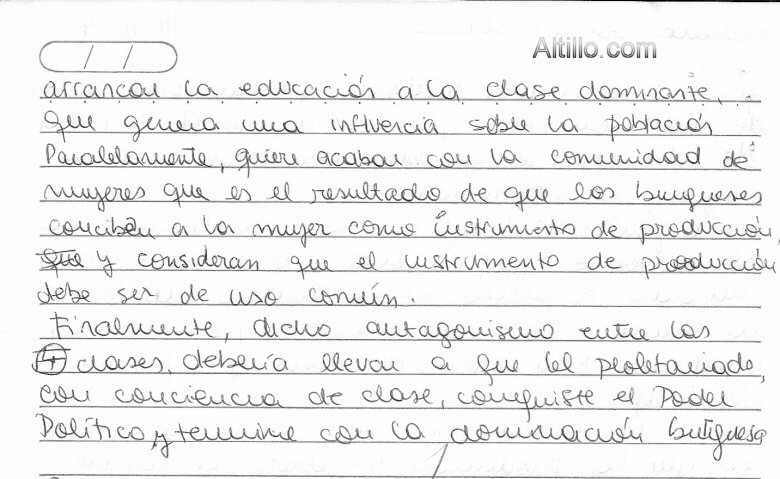 Altillo.com
arrancar la educación a la clase dominante,
que genera una influencia sobre la población
Paralelamente, quiere acabar con la comunidad de
mujeres que es el resultado de que los burgueses
conciben a la mujer como instrumento de producción,
que y consideran que el instrumento de producción
debe ser de uso común.
Finalmente, dicho antagonismo entre las
4 clases, debería llevar a que el proletariado,
con conciencia de clase, conquiste el Poder
Político, y termine con la dominación burguesa